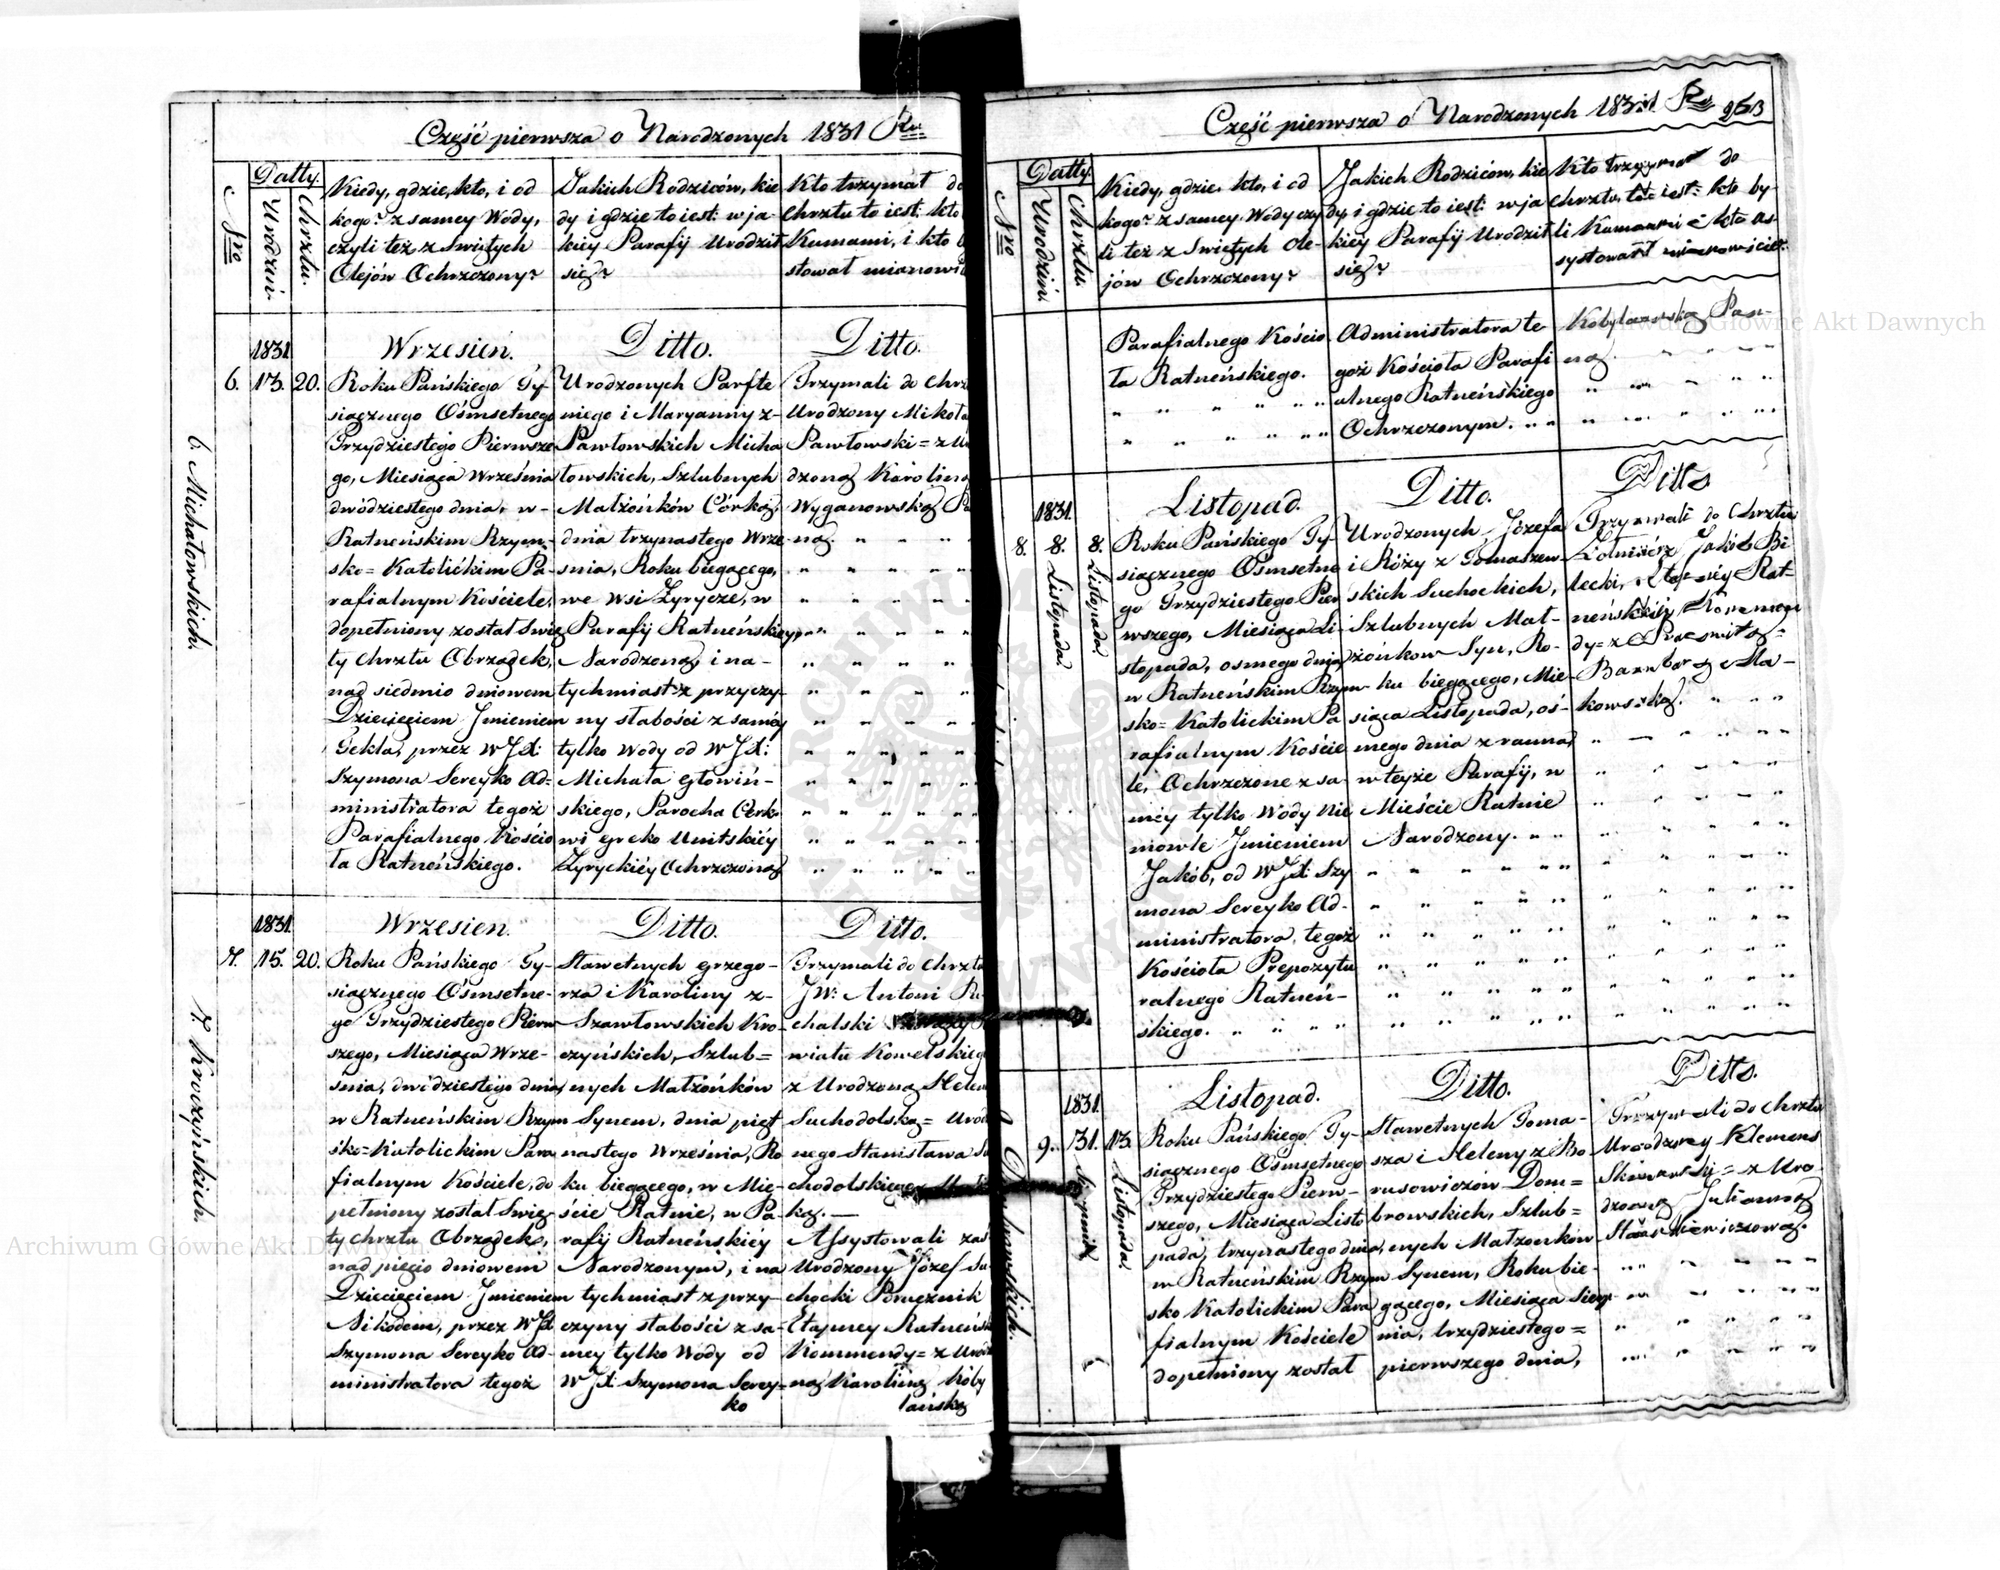 Część pierwsza o Narodzonych 1831 Ru
Nro
Datty.
Urodzin.
Chrztu.
Kiedy, gdzie, kto, i od
kogo? z samey Wody,
czyli też z Swiętych
Olejów Ochrzczony?
Jakich Rodziców, kie
dy i gdzie to iest: w ja-
kiey Parafij Urodził
się?
Kto trzymał do
Chrztu to iest: kto
Kumami, i kto
stował mianowi
6. Michałowskich.
1831
6. 13. 20.
Wrzesien.
Roku Pańskiego Ty-
siącznego Ośmsetnego
Trzydziestego Pierwsze
go, Miesiąca Września
dwódziestego dnia, w-
Ratneńskim Rzym-
sko=Katolickim Pa-
rafialnym Kościele,
dopełniony został Swię
ty Chrztu Obrządek,
nad siedmio dniowem
Dziecięciem Jmieniem
Tekla, przez WJX:
Szymona Sereyko Ad=
ministratora tegoż
Parafialnego Kościo
ła Ratneńskiego.
Ditto.
Urodzonych Parfte
niego i Maryanny z-
Pawłowskich Micha
łowskich, Szlubnych
Małżonków Córką,
dnia trzynastego Wrze
snia, Roku biegącego,
we Wsi Zyrycze, w
Parafij Ratneńskiey
Narodzoną, i na-
tychmiast z przyczy-
ny słabości z saméy
tylko Wody od WJX:
Michała Głowiń-
skiego, Parocha Cerk-
wi Greko Unitskiéy
Zyryckiéy Ochrzczoną
Ditto.
Trzymali do Chrz
Urodzony Mikoła
Pawłowski=z U
dzoną Karoliną
Wyganowską Pa
ną.
7. Kroczyńskich.
1831
7. 15. 20.
Wrzesien.
Roku Pańskiego Ty-
siącznego Ośmsetne-
go Trzydziestego Pierw
szego, Miesiąca Wrze-
śnia, dwódziestego dnia,
w Ratneńskim Rzym
sko=Katolickim Para
fialnym Kościele, do
pełniony został Swię
ty Chrztu Obrządek,
nad pięcio dniowem
Dziecięciem Jmieniem
Nikodem, przez WJX
Szymona Sereyko Ad-
ministratora tegoż
Ditto.
Sławetnych Grzego-
rza i Karoliny z-
Szawłowskich Kro-
czyńskich, Szlub=
nych Małżonków
Synem, dnia pięt
nastego Września, Ro
ku biegącego, w Mie-
ście Ratnie, w Pa-
rafij Ratneńskiey
Narodzonym, i na
tychmiast z przy-
czyny słabości z sa-
mey tylko Wody od
WJX Szymona Serey-
ko
Ditto.
Trzymali do Chrztu
JW: Antoni Pu-
chalski
wiatu Kowelskieg
z Urodzoną Helen
Suchodolską= Urod
nego Stanisława Su
chodolskiego
ką.—
Assystowali zaś
Urodzony Józef Su-
chocki Porucznik
Etapney Ratneńsk
Kommendy=z Urod
ną Karoliną Koby
lańską
Część pierwsza o Narodzonych 1831 Ru 253
Nro
Datty.
Urodzin.
Chrztu.
Kiedy, gdzie, kto, i od
kogo? z samey Wody czy
li też z Swiętych Ole-
jów Ochrzczony?
Jakich Rodziców, kie
dy, i gdzie to iest: w ja
kiey Parafij Urodził
się?
Kto trzymał do
Chrztu, to iest: kto by-
li Kumami i kto as-
systował mianowicie:
Parafialnego Kościo
ła Ratneńskiego.
Administratora te
goż Kościoła Parafi
alnego Ratneńskiego
Ochrzczonym.
Kobylańską Pan-
ną.
1831.
8. 8. Listopada. 8. Listopada.
Listopad.
Roku Pańskiego Ty-
siącznego Ośmsetne
go Trzydziestego Pier
wszego, Miesiąca Li-
stopada, osmego dnia
w Ratneńskim Rzym-
sko=Katolickim Pa
rafialnym Koście
le, Ochrzczone z sa-
méy tylko Wody Nie
mowle Jmieniem
Jakób, od WJX Szy
mona Sereyko Ad-
ministratora, tegoż
Kościoła Prepozytu
ralnego Ratneń-
skiego.
Ditto.
Urodzonych Józefa
i Róży z Tomaszew-
skich Suchockich,
Szlubnych Mał-
żonków Syn, Ro-
ku biegącego, Mie-
siąca Listopada, óś-
mego dnia z rana,
w teyże Parafij, w
Mieście Ratnie
Narodzony.
Ditto
Trzymali do Chrztu
Żołnierz Jakób Bi
lecki, Etapnéy Rat-
neńskiéy Kommen
dy=z
Barbarą Ma-
kowską.
9. Dąbrowskich.
1831.
9. 31. Sierpnia 13. Listopada
Listopad.
Roku Pańskiego Ty-
siącznego Ośmsetnego
Trzydziestego Pierw-
szego, Miesiąca Listo
pada, trzynastego dnia,
w Ratneńskim Rzym
sko Katolickim Para
fialnym Kościele
dopełniony został
Ditto.
Sławetnych Toma-
sza i Heleny z Bo
rusowiczów Dom=
browskich, Szlub=
nych Małzonków
Synem, Roku bie-
gącego, Miesiąca Sierp
nia, trzydziestego=
pierwszego dnia,
Ditto.
Trzymali do Chrztu
Urodzony Klemens
z Uro
dzoną Julianną
Stankiewiczową.
Archiwum Główne Akt Dawnych
Archiwum Główne Akt Dawnych